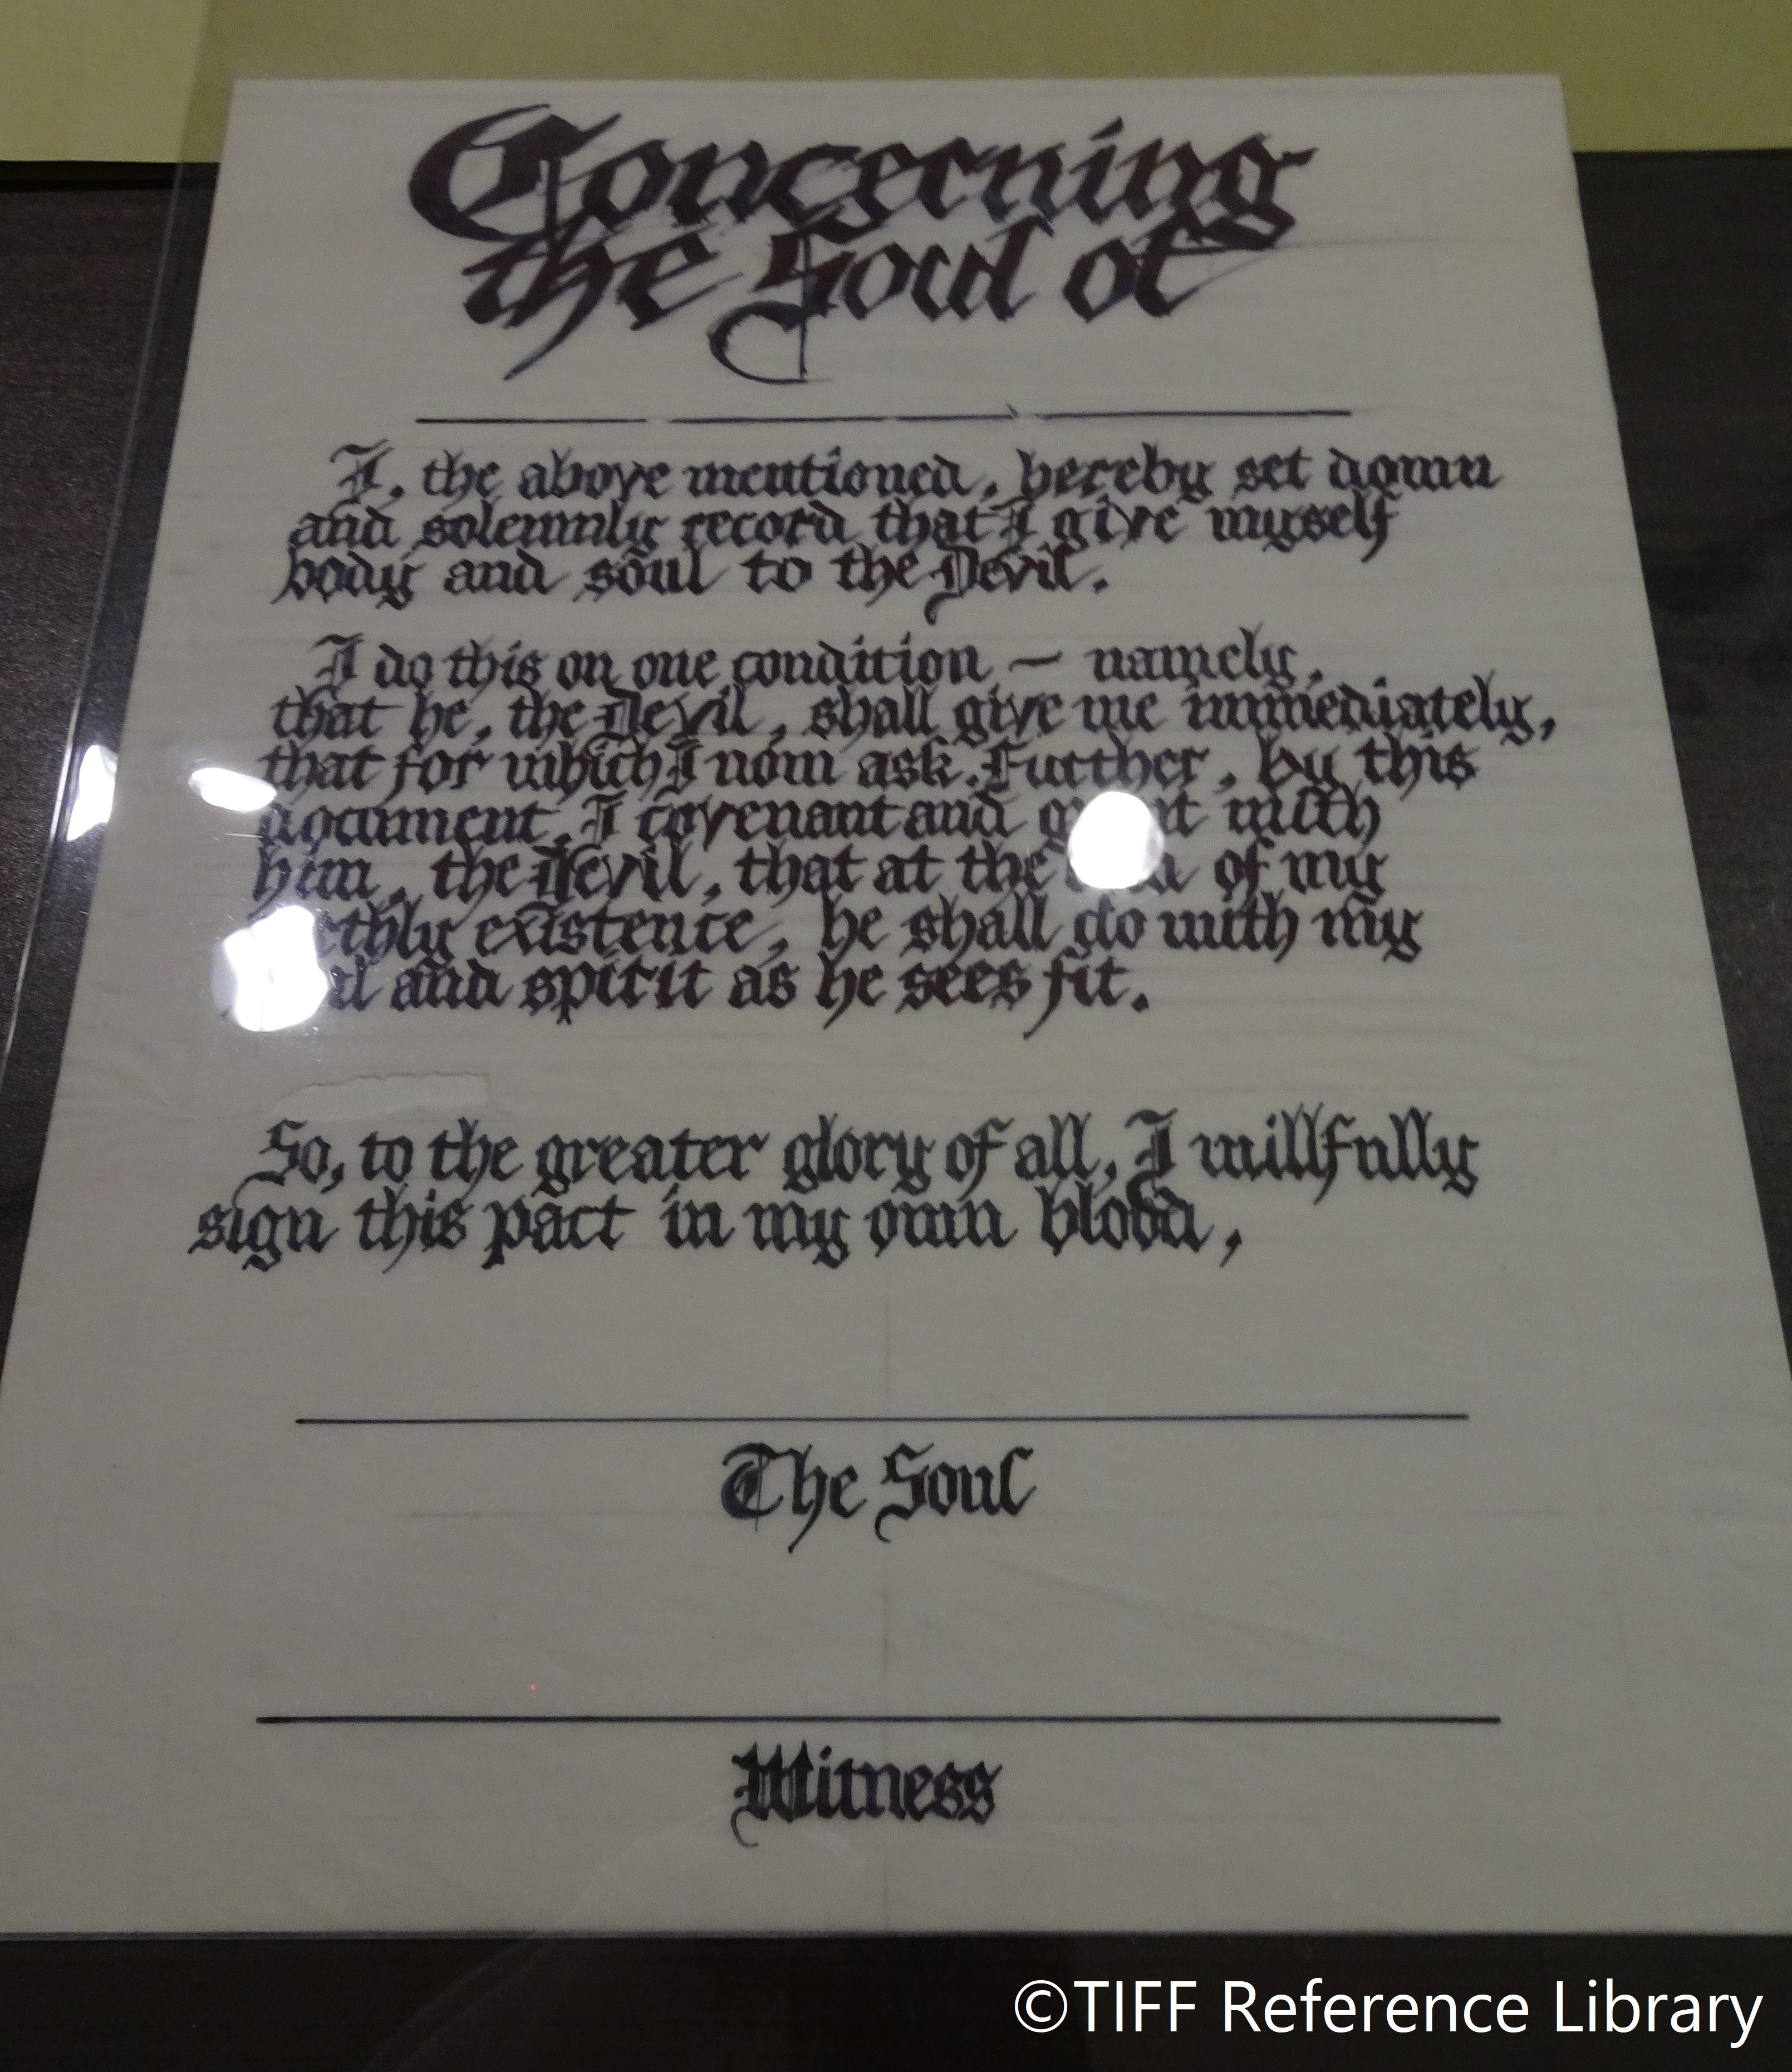 Concerning
the Soul of
I, the above mentioned, hereby set down
and solemnly record that I give myself
body and soul to the Devil.
I do this on one condition — namely,
that he, the Devil, shall give me immediately,
that for which I now ask. Further, by this
document, I covenant and with
him, the Devil, that at the of my
existence, he shall do with my
and spirit as he sees fit.
So, to the greater glory of all, I willfully
sign this pact in my own blood,
The Soul
Witness
©TIFF Reference Library